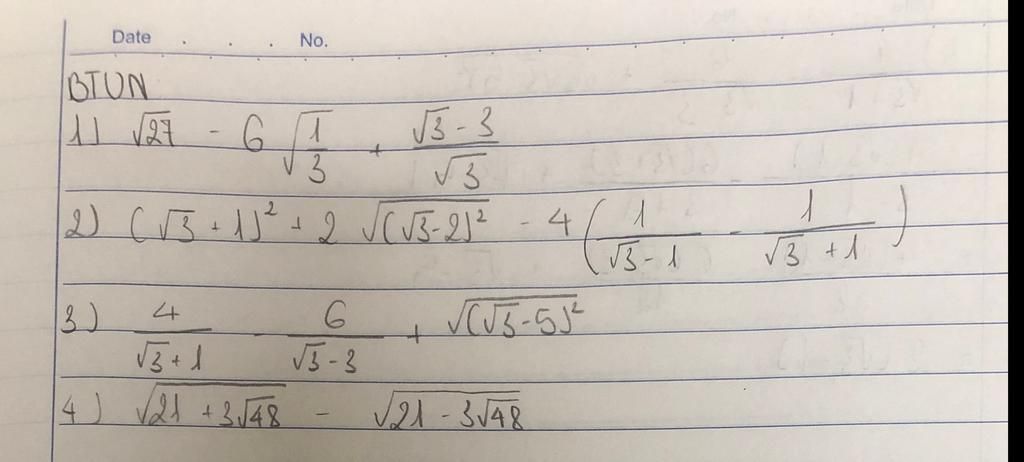 Date . . . No.
BTVN
1) √27 - 6 √(1/3) + (√3 - 3)/√3
2) (√3 + 1)² + 2 √((√3-2)²) - 4 (1/(√3-1) - 1/(√3 +1))
3) 4/(√3+1) - 6/(√3-3) + √((√3-5)²)
4) √(21 + 3√48) - √(21 - 3√48)